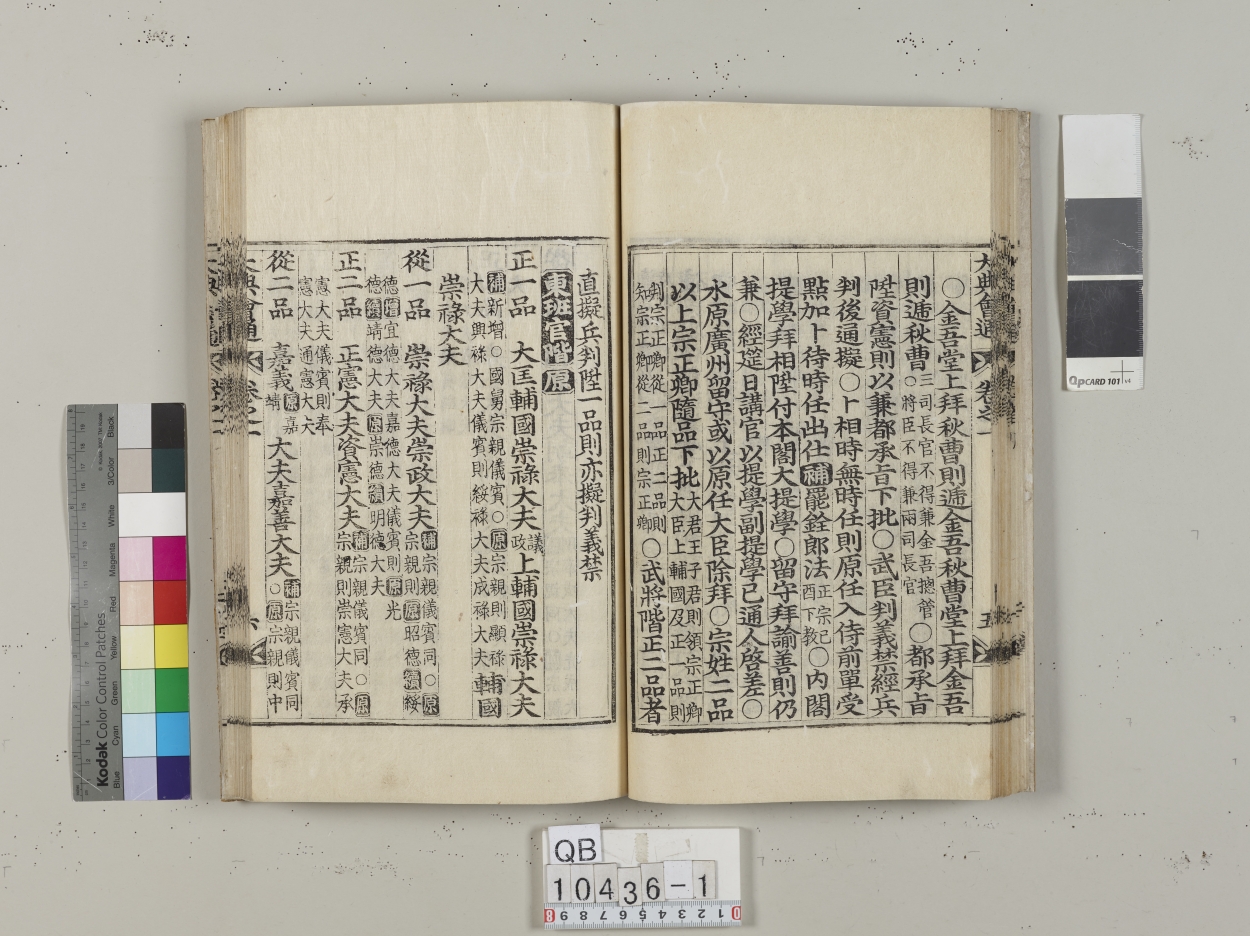 大典會通 卷之一 五
○金吾堂上拜秋曹則遞金吾秋曹堂上拜金吾
則遞秋曹○三司長官不得兼金吾摠管○將臣不得兼兩司長官○都承旨
陞資憲則以兼都承旨下批○武臣判義禁經兵
判後通擬○卜相時無時任則原任入侍前單受
點加卜待時任出仕補罷銓郎法正宗己酉下教○內閣
提學拜相陞付本閣大提學○留守拜諭善則仍
兼○經筵日講官以提學副提學已通人啓差○
水原廣州留守或以原任大臣除拜○宗姓二品
以上宗正卿隨品下批大君王子君則領宗正卿大臣上輔國及正一品則
判宗正卿從一品正二品則知宗正卿從二品則宗正卿○武將階正二品者
直擬兵判陞一品則亦擬判義禁
東班官階原
正一品 大匡輔國崇祿大夫議政上輔國崇祿大夫
補新增○國舅宗親儀賓○原宗親則顯祿大夫興祿大夫儀賓則綏祿大夫成祿大夫輔國
崇祿大夫
從一品 崇祿大夫崇政大夫補宗親儀賓同○原宗親則原昭德續綏
德增宜德大夫嘉德大夫儀賓則原光德續靖德大夫原崇德續明德大夫
正二品 正憲大夫資憲大夫補宗親儀賓同○原宗親則崇憲大夫承
憲大夫儀賓則奉憲大夫通憲大夫
從二品 嘉義原嘉靖大夫嘉善大夫補宗親儀賓同○原宗親則中
大典會通 卷之一 六
Kodak Color Control Patches
Blue Cyan Green Yellow Red Magenta White 3/Color Black
QPCARD 101 v4
QB
10436-1
0 1 2 3 4 5 6 7 8 9